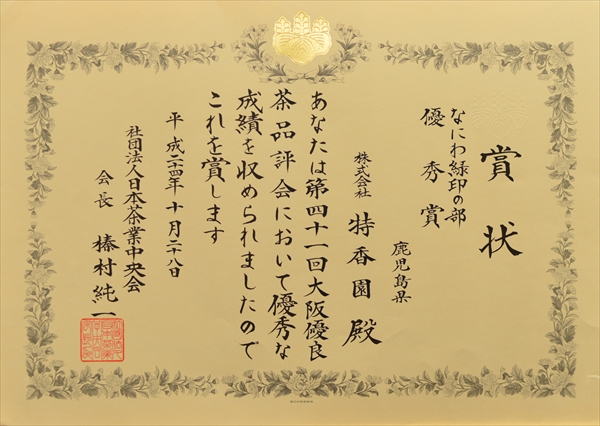 賞状
なにわ緑印の部
優秀賞
鹿児島県
株式会社 特香園 殿
あなたは第四十一回大阪優良
茶品評会において優秀な
成績を収められましたので
これを賞します
平成二十四年十月二十八日
社団法人日本茶業中央会
会長 榛村純一